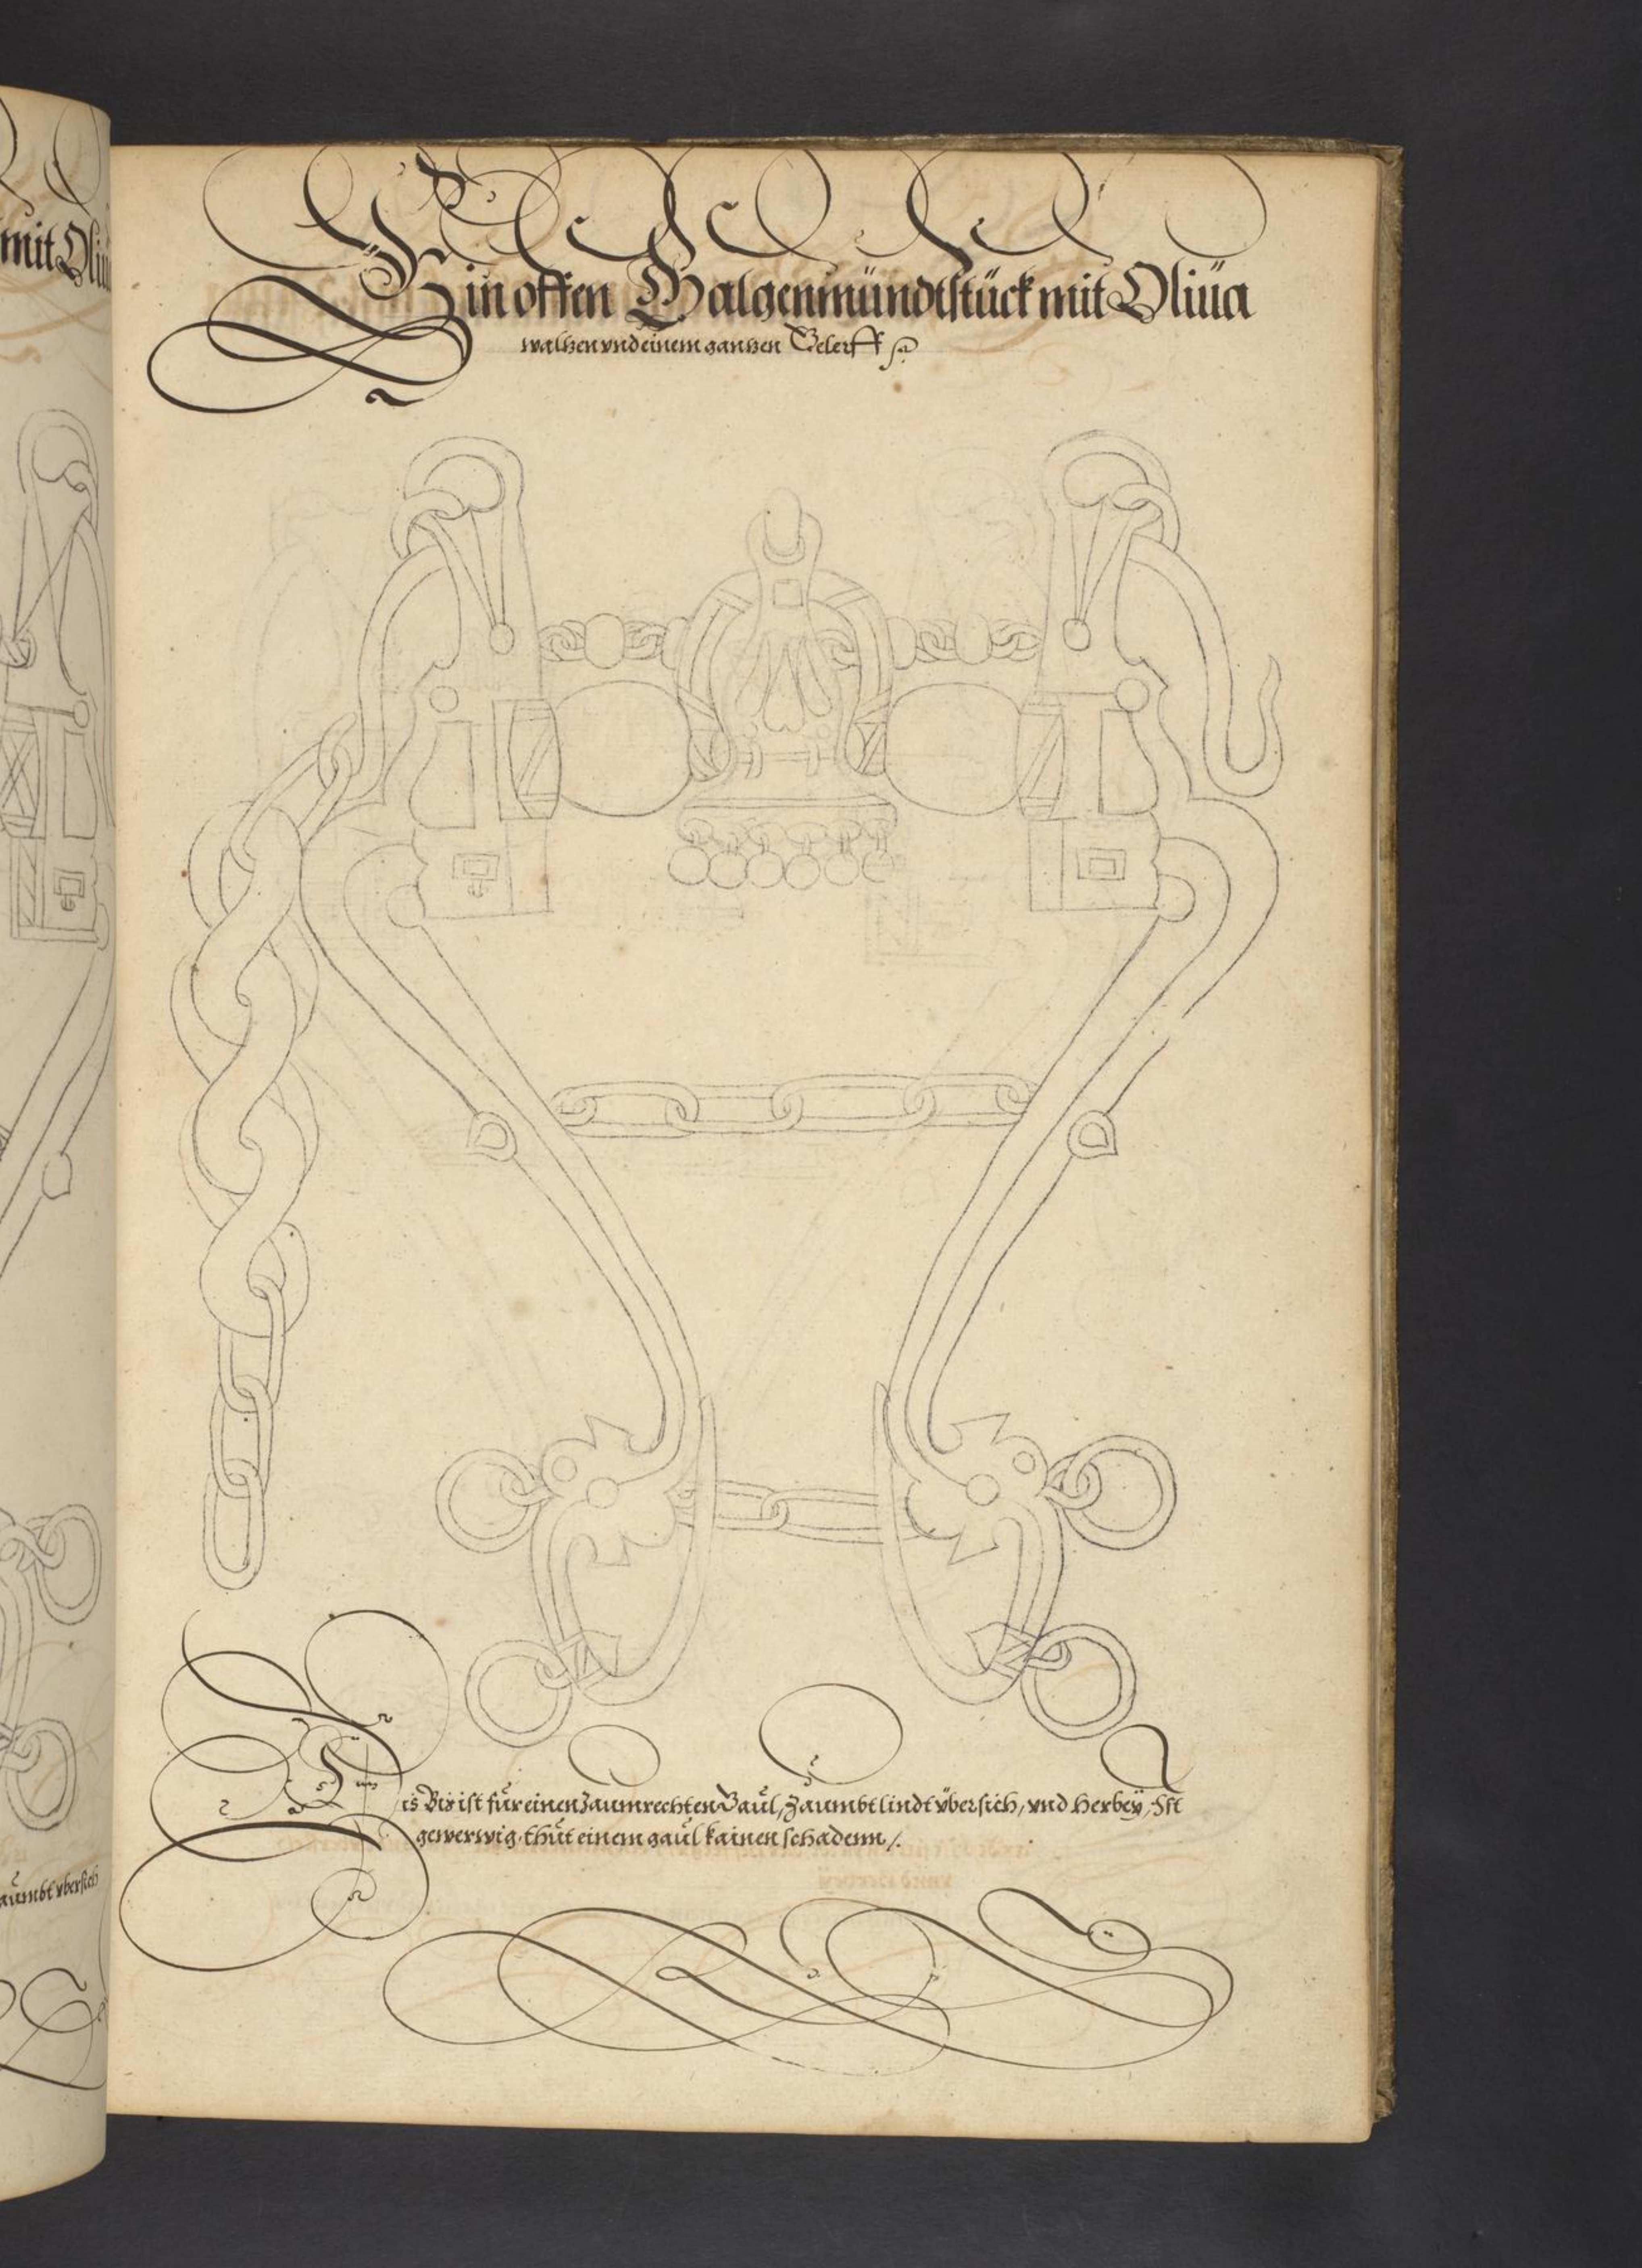 mit Oliu
Ein offen Galgenmündtstück mit Oliüa
walhen vnd einem ganhen Gelerff
aůmbt vbersich
Dis Bis ist für einen Zaumrechten Gaůl, Zaumbt lindt vbersich, vnd Herbeÿ, Ist
gewerwig, thůt einem gaůl kainen schadenn /.